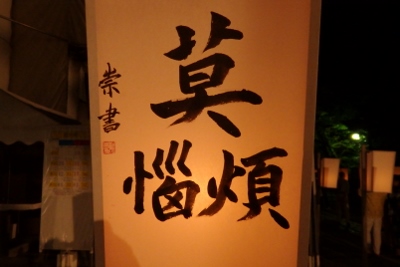 莫
煩惱
崇書